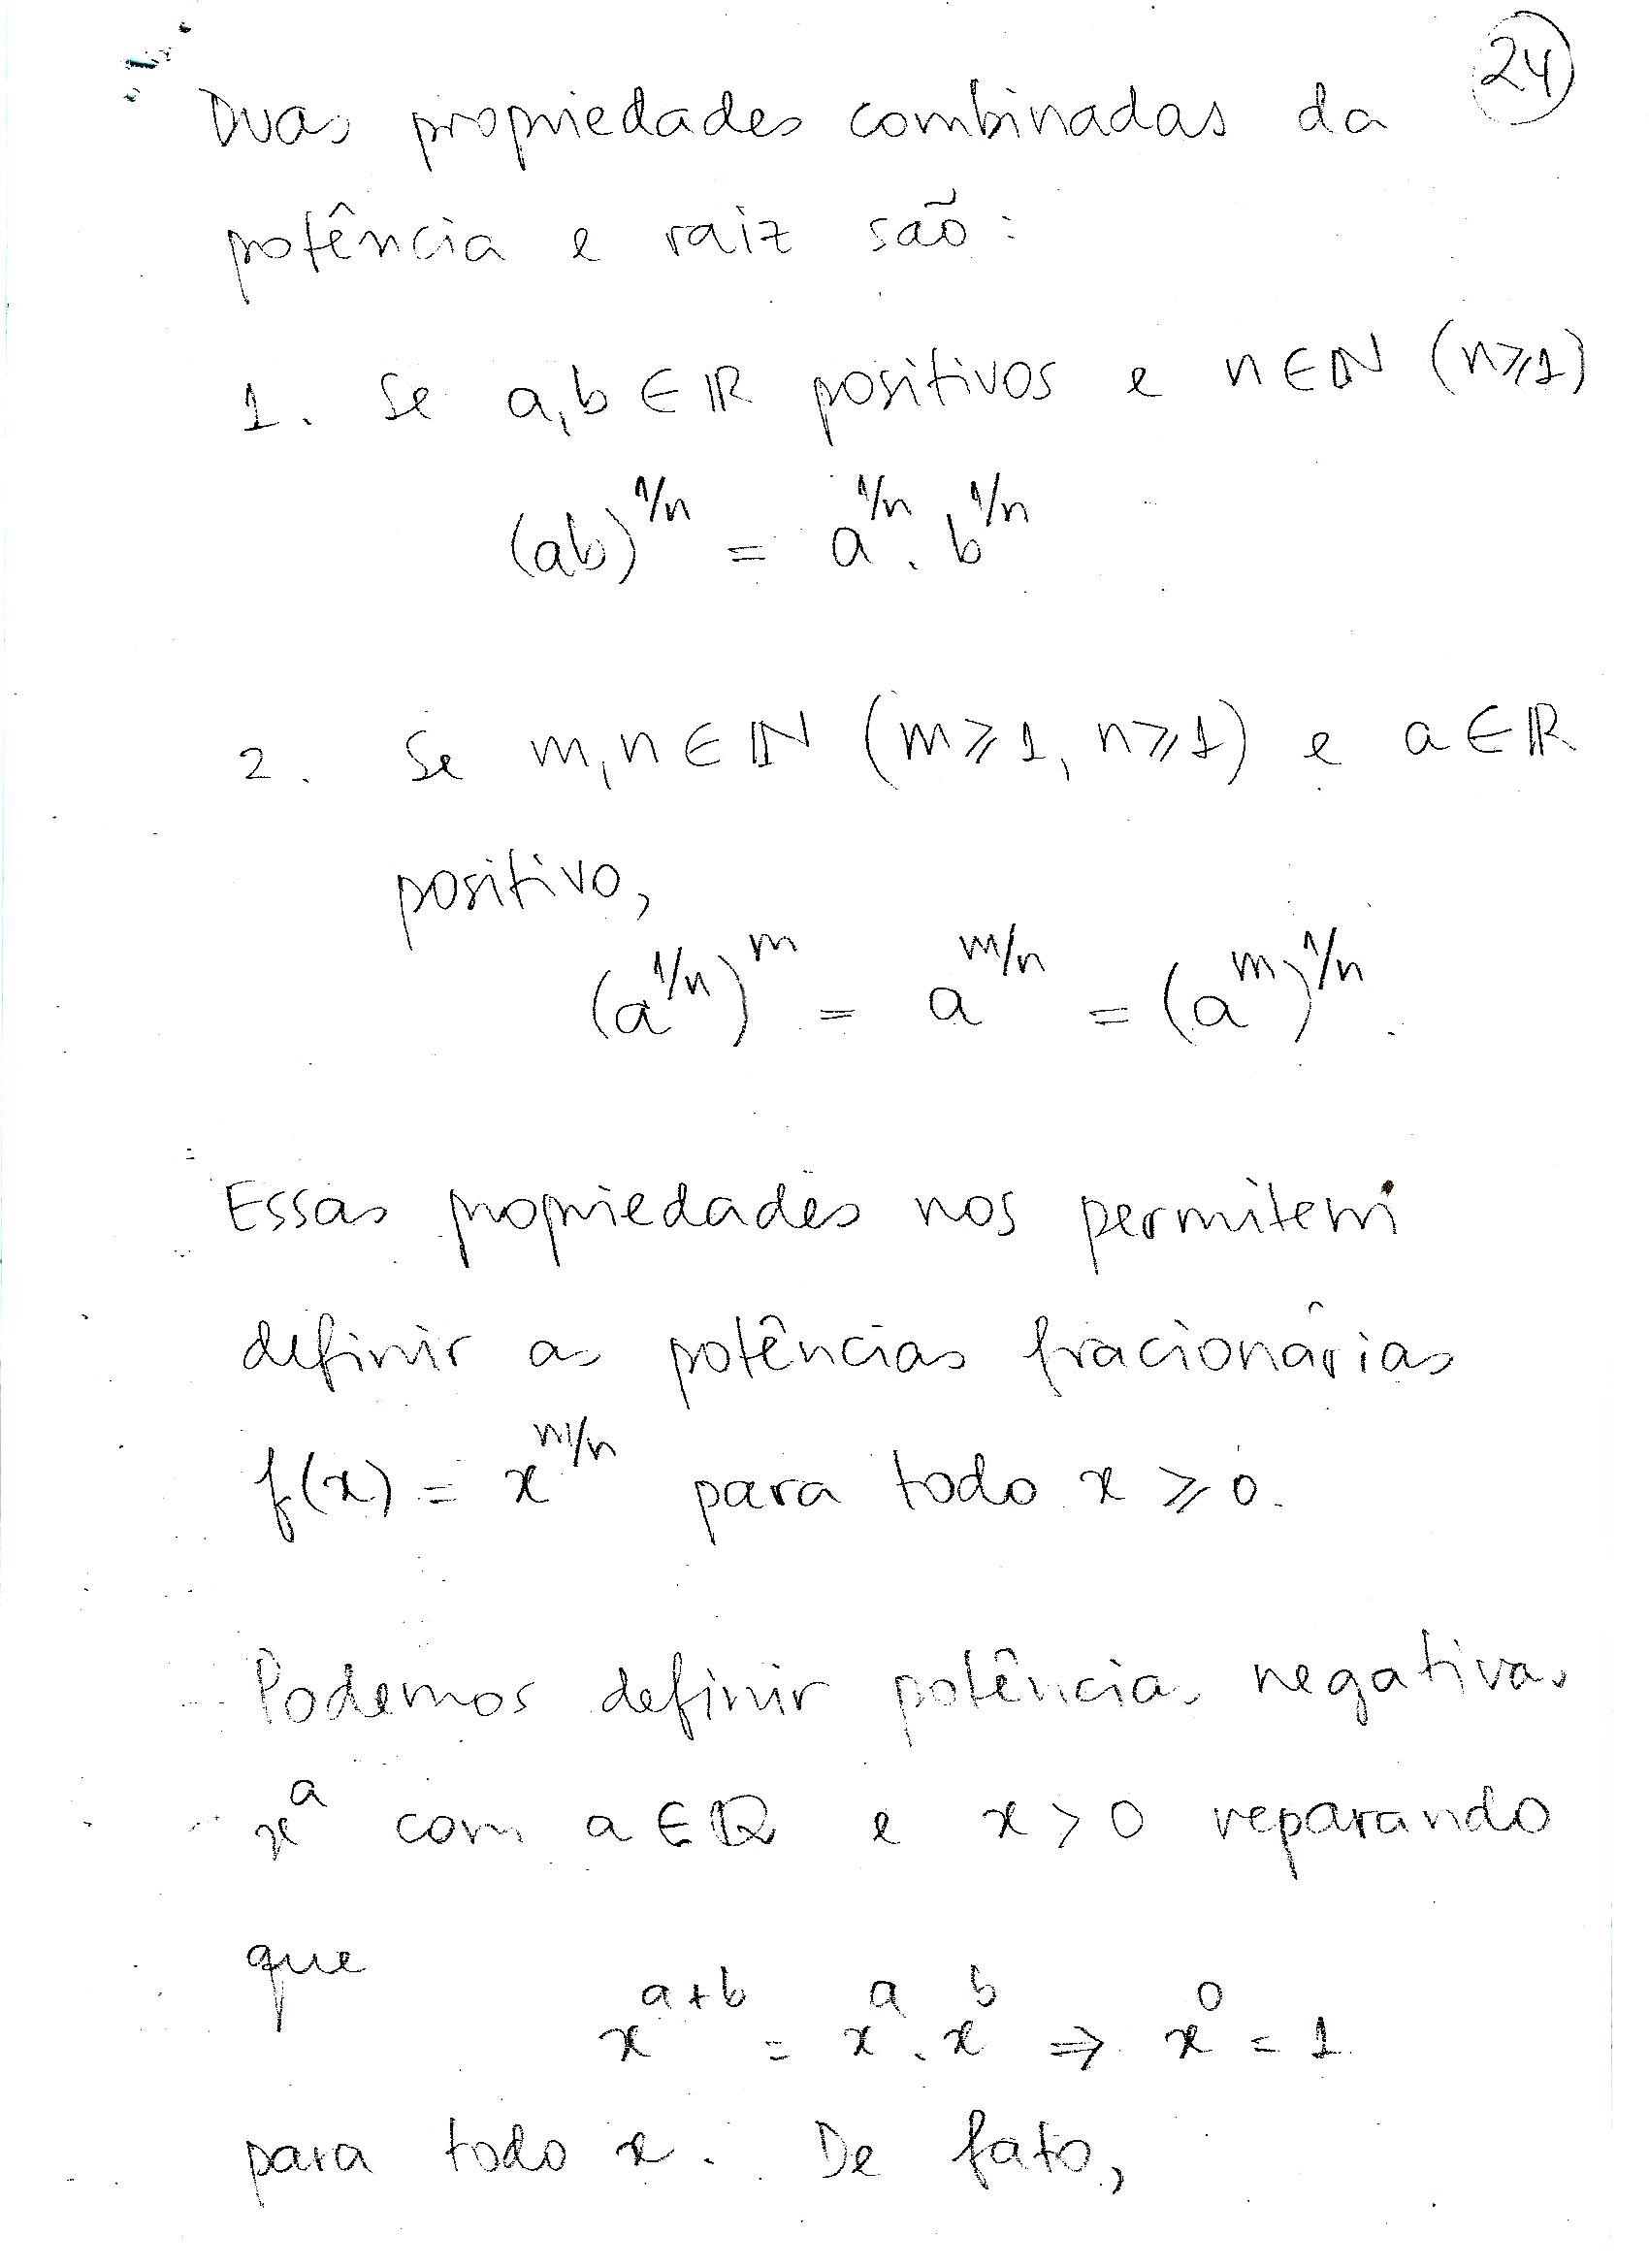 24
Duas propriedades combinadas da
potência e raiz são:
1. Se a,b ∈ ℝ positivos e n ∈ ℕ (n ≥ 1)
(ab)^{1/n} = a^{1/n} . b^{1/n}
2. Se m,n ∈ ℕ (m ≥ 1, n ≥ 1) e a ∈ ℝ
positivo,
(a^{1/n})^m = a^{m/n} = (a^m)^{1/n}.
Essas propriedades nos permitem
definir as potências fracionárias
f(x) = x^{m/n} para todo x ≥ 0.
Podemos definir potências negativas
x^a com a ∈ ℚ e x > 0 reparando
que
x^{a+b} = x^a . x^b ⇒ x^0 = 1
para todo x. De fato,